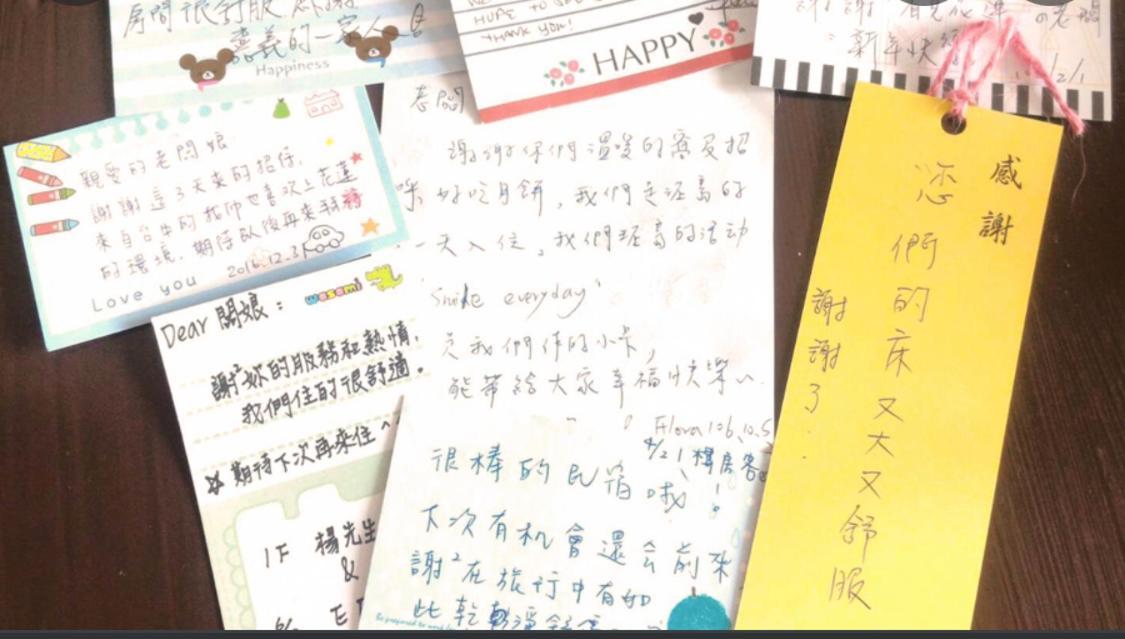 房間很舒服
嘉義的一家人
Happiness
HOPE TO SEE
THANK YOU!
HAPPY
新年快
親愛的老闆娘
謝謝這3天來的招待,
來自台中的 也喜歡上花蓮
的環境,期待以後再來
Love you 2016.12.31
Dear 闆娘:
謝²妳的服務和熱情,
我們住的很舒適。
期待下次再來住^^
1F 楊先生
&
老闆
謝謝你們溫暖的 及招
呼,好吃月餅,我們是 的
一天入住,我們 的活動
"Smile everyday"
我們作的小卡,
能帶給大家幸福快樂^^
Flora 106.10.5
4/21 樓房客
很棒的民宿哦!
下次有机會還会前來
謝²在旅行中有如
此乾乾淨舒
感謝
您們的床又大又舒服
謝謝了